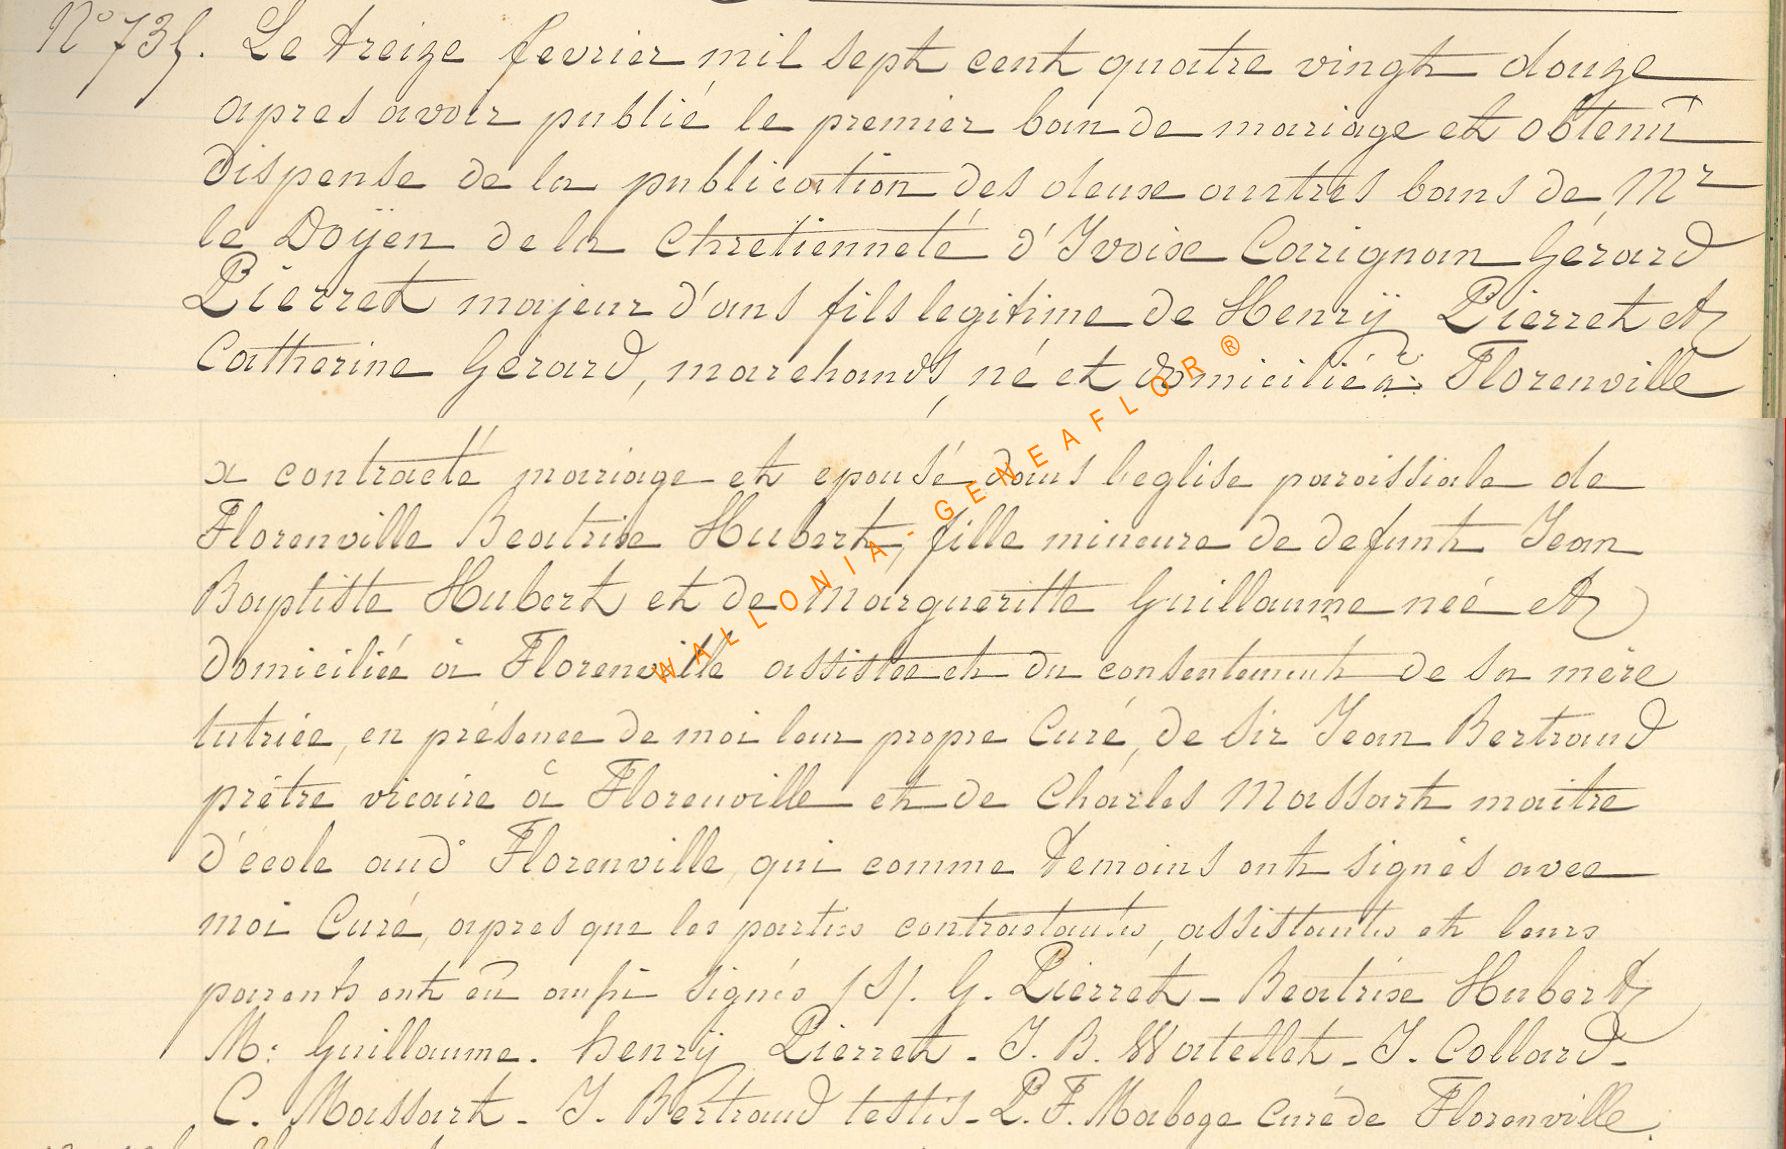 N° 735. Le treize fevrier mil sept cent quatre vingt douze
apres avoir publié le premier ban de mariage et obtenû
dispense de la publication des deux autres bans de Mr
le Doÿen de la Chretienneté d'Ivoix Carignan Gérard
Pierret majeur d'ans fils legitime de Henrÿ Pierret et
Catherine Gérard, marchands, né et domicilié à Florenville
a contracté mariage et epousé dans l'eglise paroissiale de
Florenville Beatrise Hubert, fille mineure de defunt Jean
Baptiste Hubert et de Margueritte Guillaume neé et
domiciliée à Florenville assistée et du consentement de sa mère
tutrice, en présence de moi leur propre Curé, de Sir Jean Bertrand
prêtre vicaire à Florenville et de Charles Massart maitre
d'école aud° Florenville, qui comme temoins ont signés avec
moi Curé, apres que les parties contractantes, assistantes et leurs
parents ont eû aussi signés (S). G. Pierret - Beatrise Hubert
M: Guillaume. henrÿ Pierret - J. B. Watellet - J. Collard -
C. Massart - J. Bertrand testis - P. F. Maboge curé de Florenville.
WALLONIA - GENEAFLOR ®